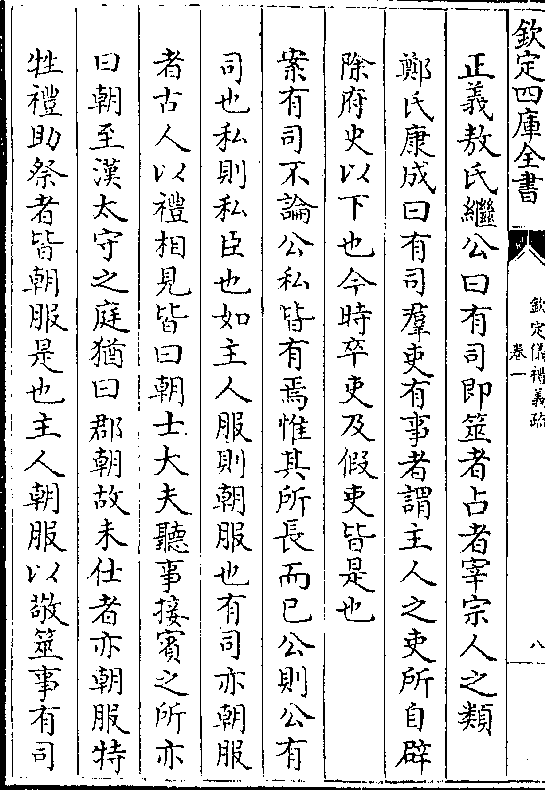 欽定四庫全書
欽定儀禮義疏
卷一
八
正義敖氏繼公曰有司即筮者占者宰宗人之類
鄭氏康成曰有司羣吏有事者謂主人之吏所自辟
除府史以下也今時卒吏及假吏皆是也
案有司不論公私皆有焉惟其所長而已公則公有
司也私則私臣也如主人服則朝服也有司亦朝服
者古人以禮相見皆曰朝士大夫聽事接賓之所亦
曰朝至漢太守之庭猶曰郡朝故未仕者亦朝服特
牲禮助祭者皆朝服是也主人朝服以敬筮事有司